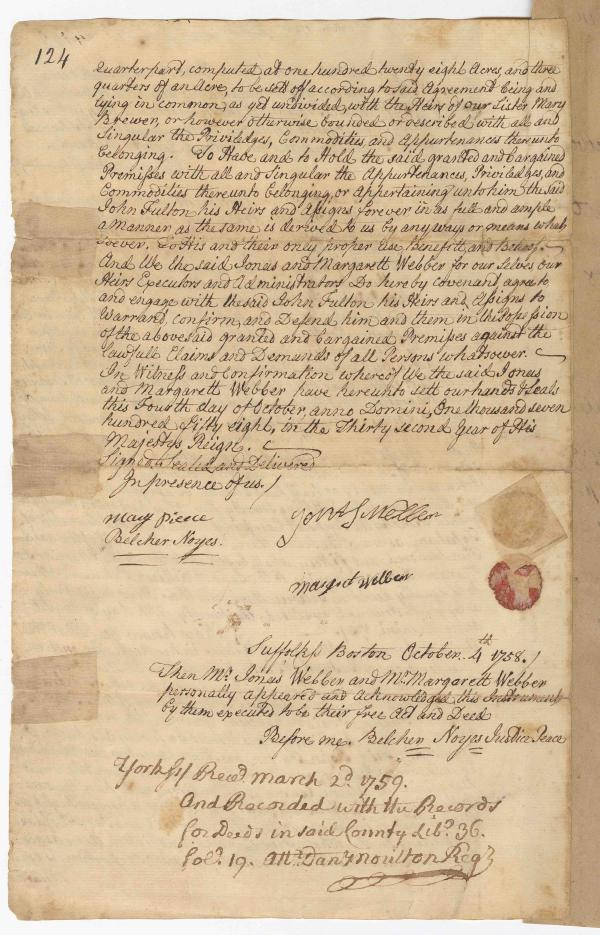 124
Quarter part, computed at one hundred twenty eight Acres, and three
quarters of an Acre, to be sett off according to said Agreement being and
lying in common, as yet undivided, with the Heirs of our Sister Mary
Brewer, or however otherwise bounded or described with all and
Singular the Priviledges, Commodities and Appurtenances thereunto
belonging. To Have and to Hold the said granted and bargained
Premisses with all and Singular the Appurtenances, Priviledges, and
Commodities thereunto belonging, or appertaining unto him the said
John Fulton his Heirs and Assigns forever in as full and ample
a Manner as the same is derived to us by any ways or means what
soever. To His and their only proper Use Benefitt, and Behoof.
And We the said Jonas and Margarett Webber for our selves our
Heirs Executors and Administrators Do hereby Covenant, agree to
and engage with the said John Fulton his Heirs and Assigns to
Warrand, confirm and Defend him and them in the Possession
of the abovesaid granted and bargained Premises against the
lawfull Claims and Demands of all Persons whatsoever.
In Witness and Confirmation whereof We the said Jonas
and Margarett Webber have hereunto sett our hands & Seals
this Fourth day of October, anno Domini, One thousand seven
hundred & fifty eight, in the Thirty second Year of His
Majestys Reign.
Signed Sealed and Delivered
In presence of us. /
Mary Pierce
Belcher Noyes.
Jonas Webber
Margret Webber
Suffolk ss Boston October. 4th 1758. /
Then Mr. Jonas Webber and Mrs Margarett Webber
personally appeared and acknowledged this Instrument
by them executed to be their free Act and Deed
Before me. Belcher Noyes Justice Peace
York ss/ Recd. March 2d. 1759.
And Recorded with the Records
for Deeds in said County Libo. 36.
Fol. 19. Attr. Danl Moulton Regr